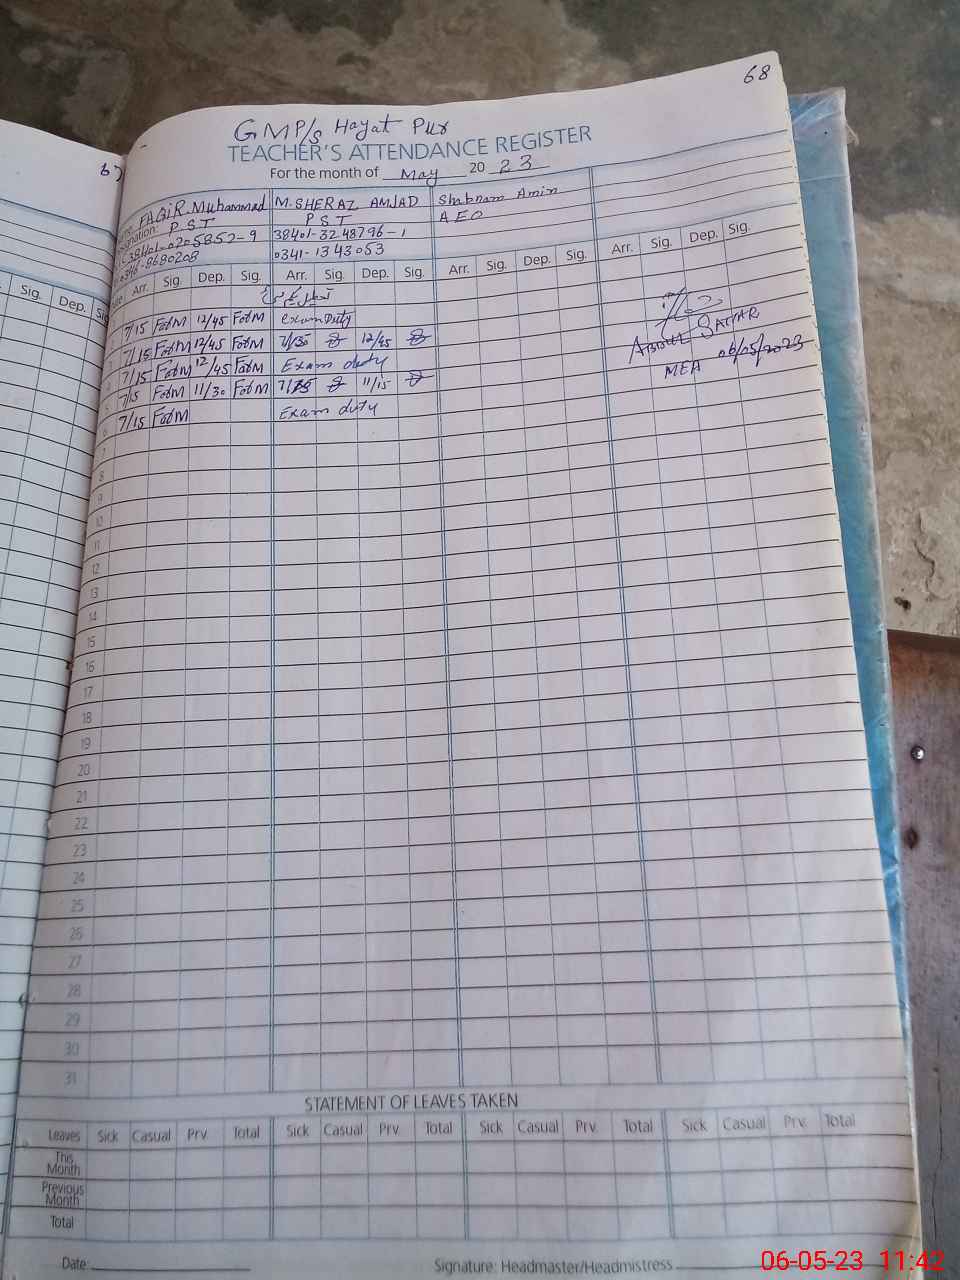 68
67
GMP/s Hayat Pur
TEACHER'S ATTENDANCE REGISTER
For the month of May 20 23
FAQIR Muhammad M. SHERAZ AMJAD Shabnam Amin
Designation: P S T P S T A E O
38401-0205852-9 38401-3248796-1
0346-8680208 0341-1343053
Sig. Dep. Arr. Sig. Dep. Sig. Arr. Sig. Dep. Sig. Arr. Sig. Dep. Sig. Arr. Sig. Dep. Sig.
7/15 FatM 12/45 FatM Exam Duty
7/15 FatM 12/45 FatM 7/30 12/45
7/15 FatM 12/45 FatM Exam duty
7/15 FatM 11/30 FatM 7/15 11/15
6 7/15 FatM Exam duty
ABDUL SATTAR
MEA 06/05/2023
7
8
9
10
11
12
13
14
15
16
17
18
19
20
21
22
23
24
25
26
27
28
29
30
31
STATEMENT OF LEAVES TAKEN
Leaves Sick Casual Prv. Total Sick Casual Prv. Total Sick Casual Prv. Total Sick Casual Prv. Total
This Month
Previous Month
Total
Date: Signature: Headmaster/Headmistress
06-05-23 11:42